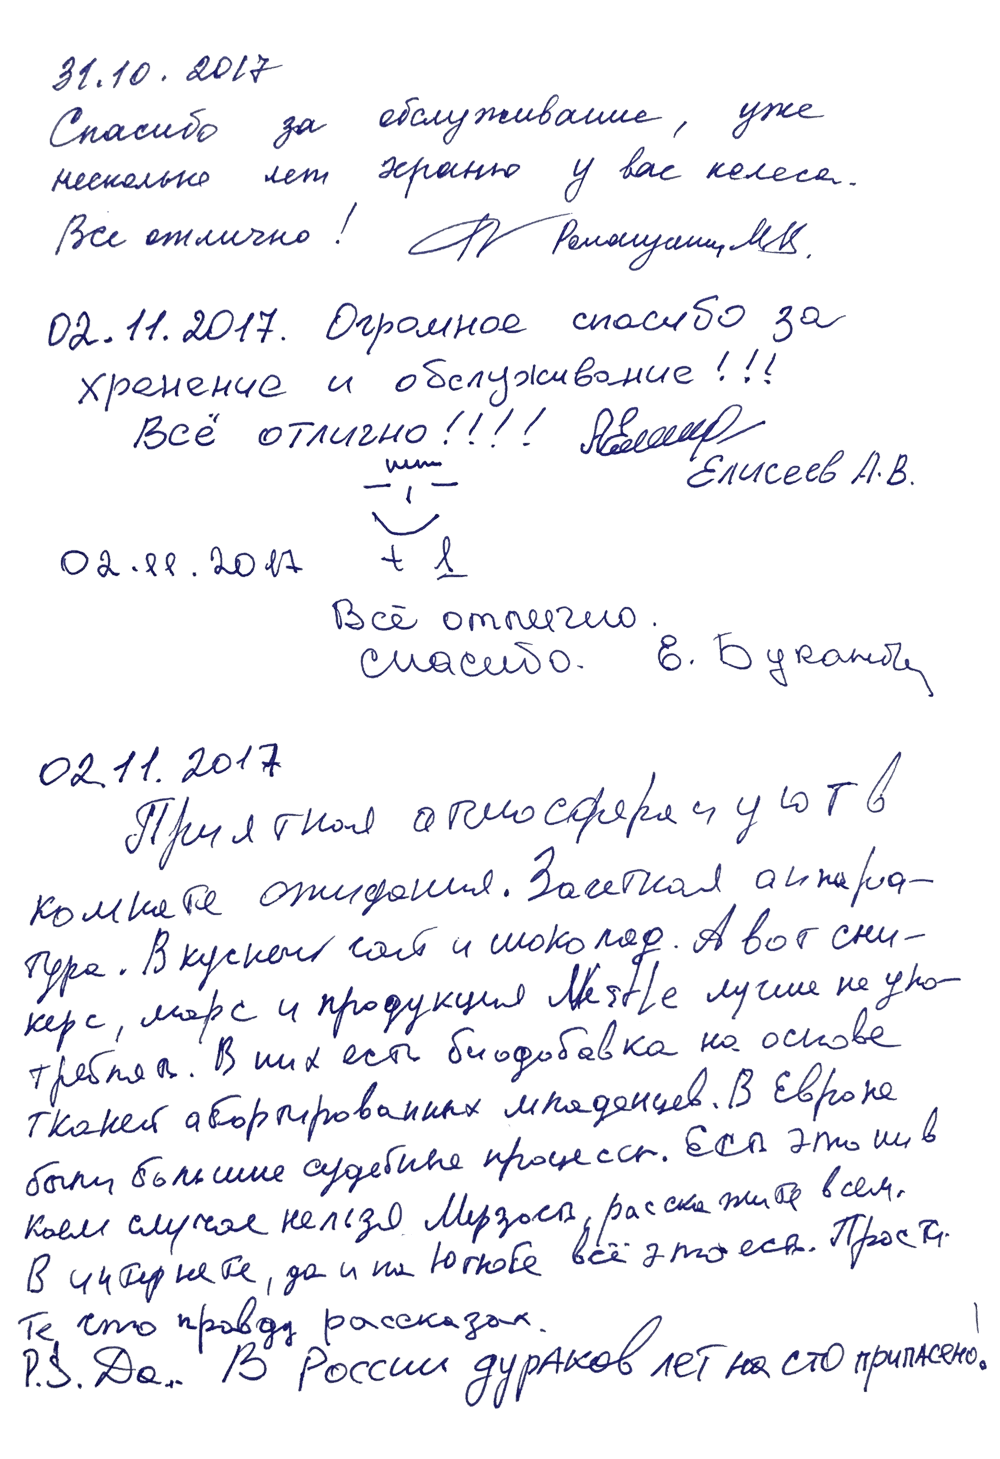 31.10.2017
Спасибо за обслуживание, уже
несколько лет храню у вас колеса.
Все отлично! М.К.
02.11.2017. Огромное спасибо за
хранение и обслуживание!!!
Всё отлично!!!!
Елисеев А.В.
02.11.2017 + 1
Всё отлично.
спасибо. Е.
02.11.2017
Приятная атмосфера и уют в
комнате ожидания. Зачетная аппара-
тура. Вкусный чай и шоколад. А вот сни-
керс, марс и продукция Nestle лучше не упо-
треблять. В них есть биодобавка на основе
тканей абортированных младенцев. В Европе
были большие судебные процессы. Есть это ни в
коем случае нельзя Мерзость, расскажите всем.
В интернете, да и на Ютюбе всё это есть. Прости-
те что правду рассказал.
P.S. Да.. В России дураков лет на сто припасено!